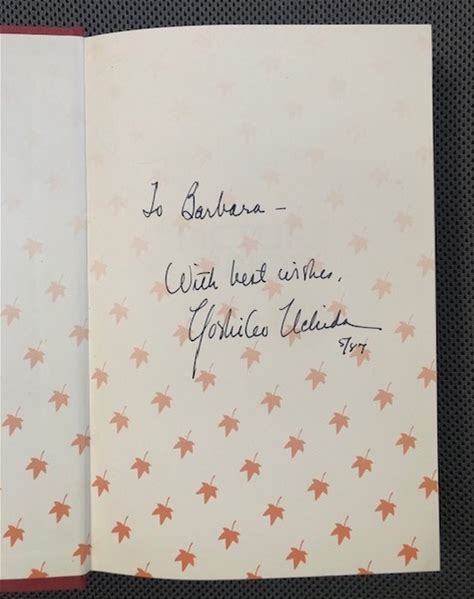 To Barbara –
With best wishes,
Yoshiko Uchida
5/87